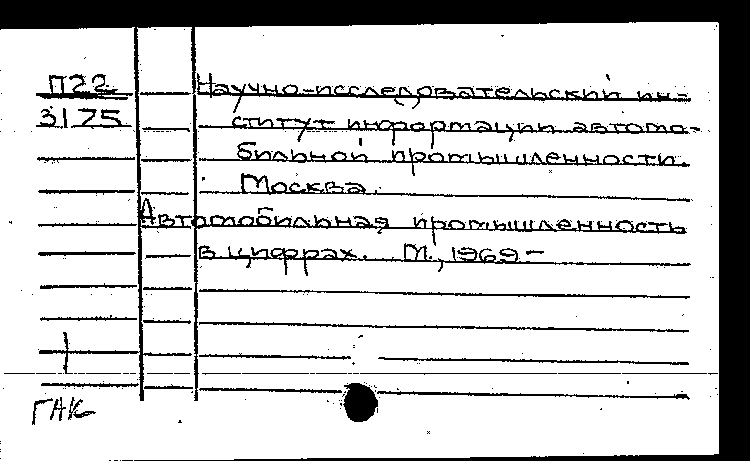 П22
3175
Научно-исследовательский ин-
ститут информации автомо-
бильной промышленности.
Москва.
Автомобильная промышленность
в цифрах. М., 1969-
ГАК